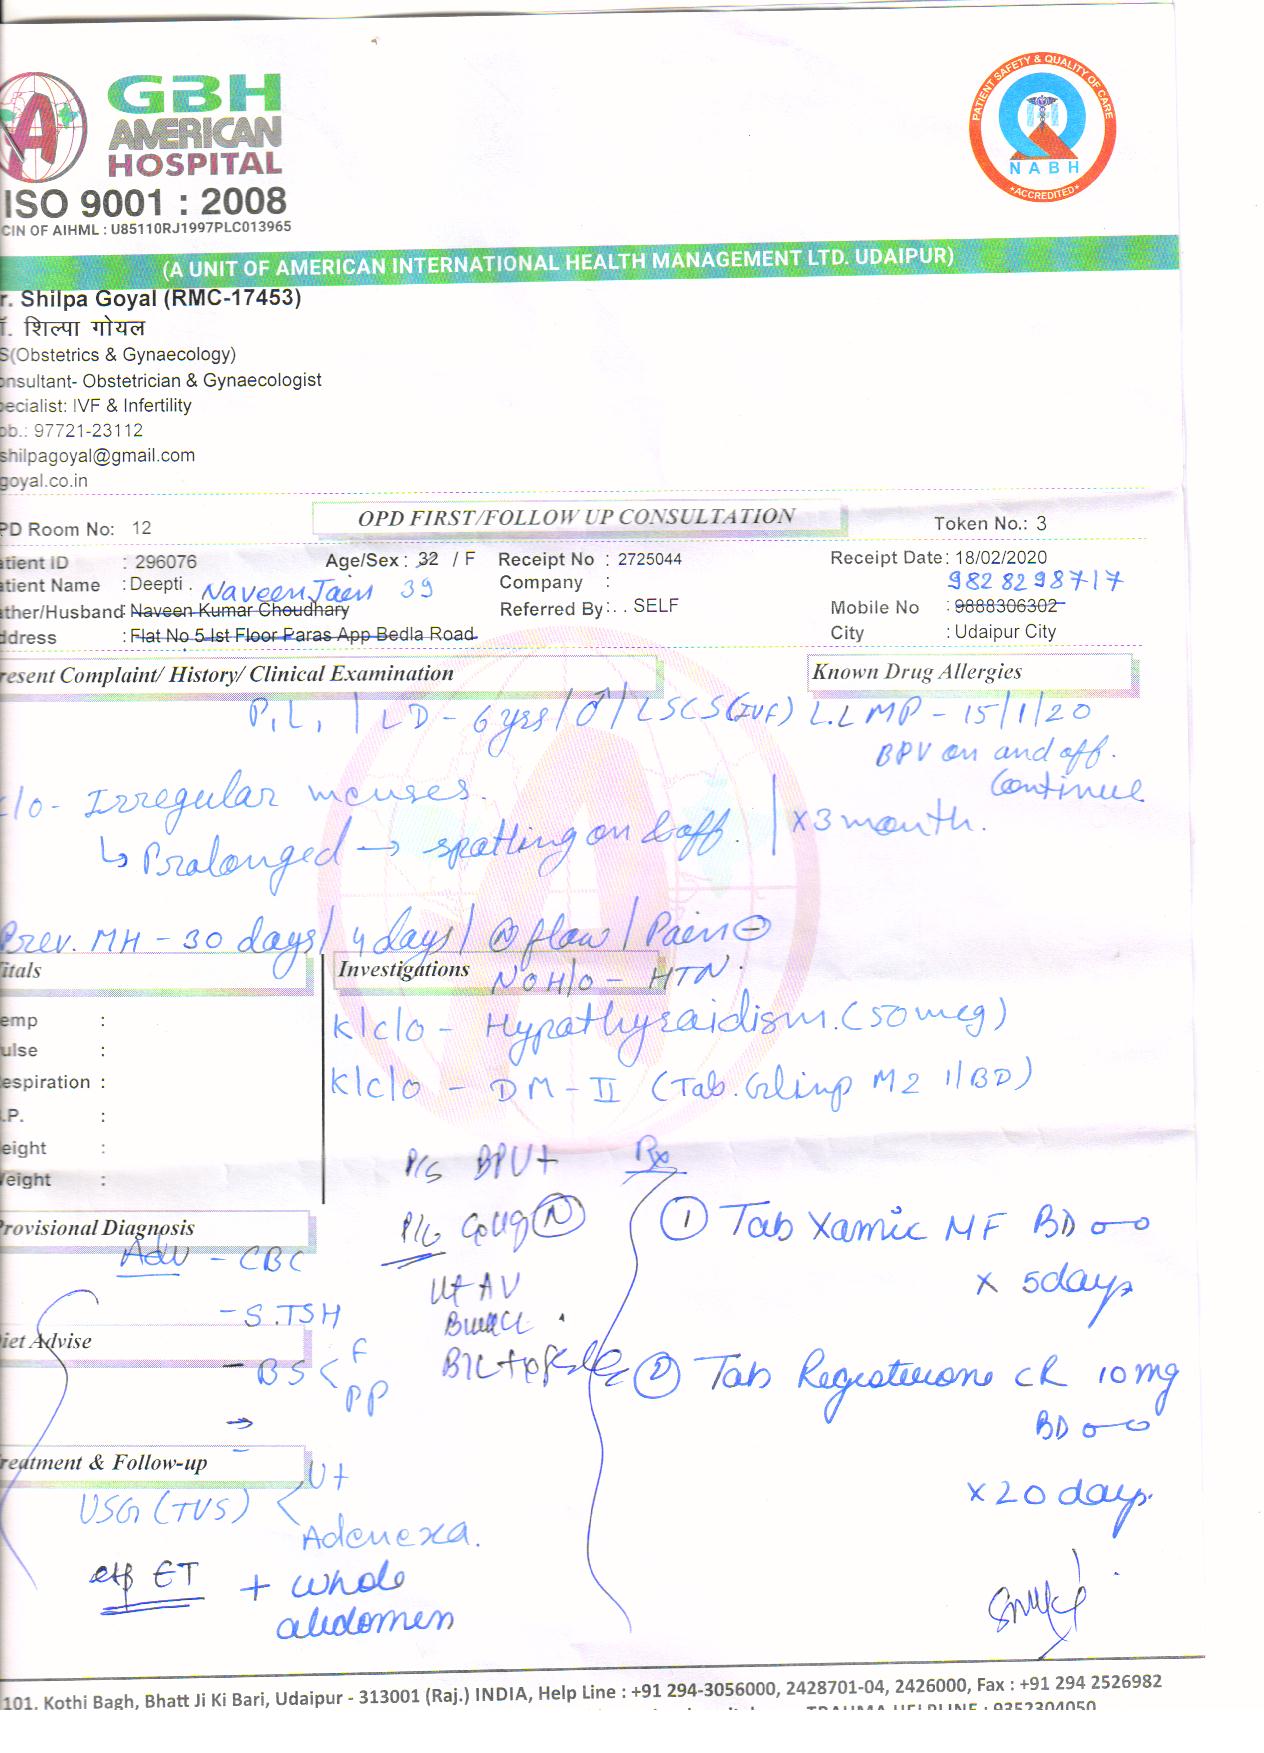 GBH
AMERICAN
HOSPITAL
ISO 9001 : 2008
CIN OF AIHML : U85110RJ1997PLC013965
PATIENT SAFETY & QUALITY OF CARE
NABH
ACCREDITED
(A UNIT OF AMERICAN INTERNATIONAL HEALTH MANAGEMENT LTD. UDAIPUR)
r. Shilpa Goyal (RMC-17453)
ॉ. शिल्पा गोयल
S(Obstetrics & Gynaecology)
onsultant- Obstetrician & Gynaecologist
pecialist: IVF & Infertility
ob.: 97721-23112
shilpagoyal@gmail.com
goyal.co.in
OPD FIRST/FOLLOW UP CONSULTATION
PD Room No: 12 Token No.: 3
atient ID : 296076 Age/Sex : 32 / F Receipt No : 2725044 Receipt Date: 18/02/2020
atient Name : Deepti . Naveen Jain 39 Company : 9828298717
ather/Husband: Naveen Kumar Choudhary Referred By: . . SELF Mobile No : 9888306302
ddress : Flat No 5 Ist Floor Paras App Bedla Road City : Udaipur City
resent Complaint/ History/ Clinical Examination Known Drug Allergies
P1L1 | LD - 6 yrs / ♂ / LSCS (IVF) L.LMP - 15/1/20
BPV on and off.
Continue
c/o - Irregular menses.
↳ Prolonged → spotting on & off. | x 3 month.
Prev. MH - 30 days / 4 days / (N) flow / Pain ⊖
itals Investigations No H/o - HTN
emp :
ulse :
espiration :
.P. :
eight :
eight :
K/c/o - Hypothyroidism. (50 mcg)
K/c/o - DM - II (Tab. Glimp M2 1/BD)
P/S BPV+ Rx
rovisional Diagnosis
Adv - CBC
- S.TSH
iet Advise
- BS < F
PP
Ut AV
① Tab Xamic MF BD o-o
x 5 days
② Tab Regesterone CR 10 mg
BD o-o
x 20 days.
reatment & Follow-up
USG (TVS) < Ut
Adenexa.
ET + whole
abdomen
101, Kothi Bagh, Bhatt Ji Ki Bari, Udaipur - 313001 (Raj.) INDIA, Help Line : +91 294-3056000, 2428701-04, 2426000, Fax : +91 294 2526982
TRAUMA HELPLINE : 9352304050